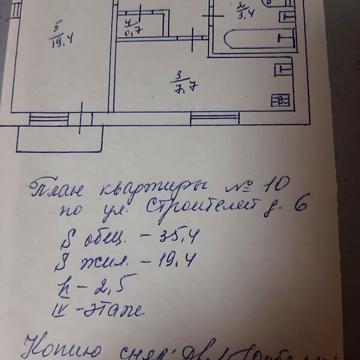 2
3,4
5
19,4
4
0,7
3
7,7
План квартиры № 10
по ул. Строителей д. 6
S общ. - 35,4
S жил. - 19,4
h - 2,5
IV - этаж
Копию снял: